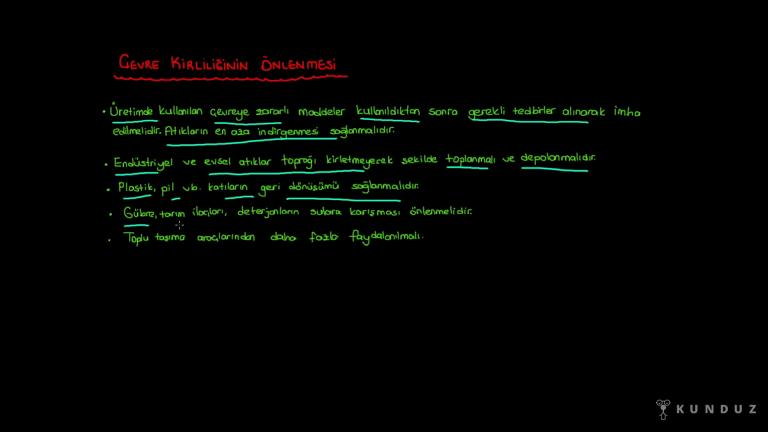 ÇEVRE KİRLİLİĞİNİN ÖNLENMESİ
• Üretimde kullanılan çevreye zararlı maddeler kullanıldıktan sonra gerekli tedbirler alınarak imha
edilmelidir. Atıkların en aza indirgenmesi sağlanmalıdır.
• Endüstriyel ve evsel atıklar toprağı kirletmeyecek şekilde toplanmalı ve depolanmalıdır.
• Plastik, pil vb. katıların geri dönüşümü sağlanmalıdır.
• Gübre, tarım ilaçları, deterjanların sulara karışması önlenmelidir.
• Toplu taşıma araçlarından daha fazla faydalanılmalı.
KUNDUZ